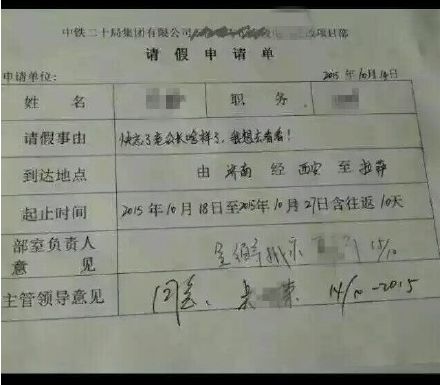 中铁二十局集团有限公司 项目部
请假申请单
申请单位: 2015年10月14日
姓 名 职 务
请假事由 快忘了老会长啥样了,我想去看看!
到达地点 由 济南 经 西安 至 拉萨
起止时间 2015年10月18日至2015年10月27日含往返10天
部室负责人
意 见 15/10
主管领导意见 同意、 14/10-2015